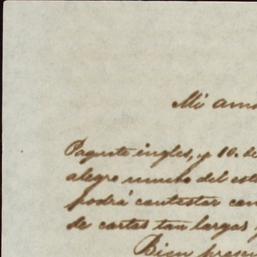 Mi am
Paquete ingles, y 10. de
alegro mucho del est
podrá contestar con
de cartas tan largas
Bien prese